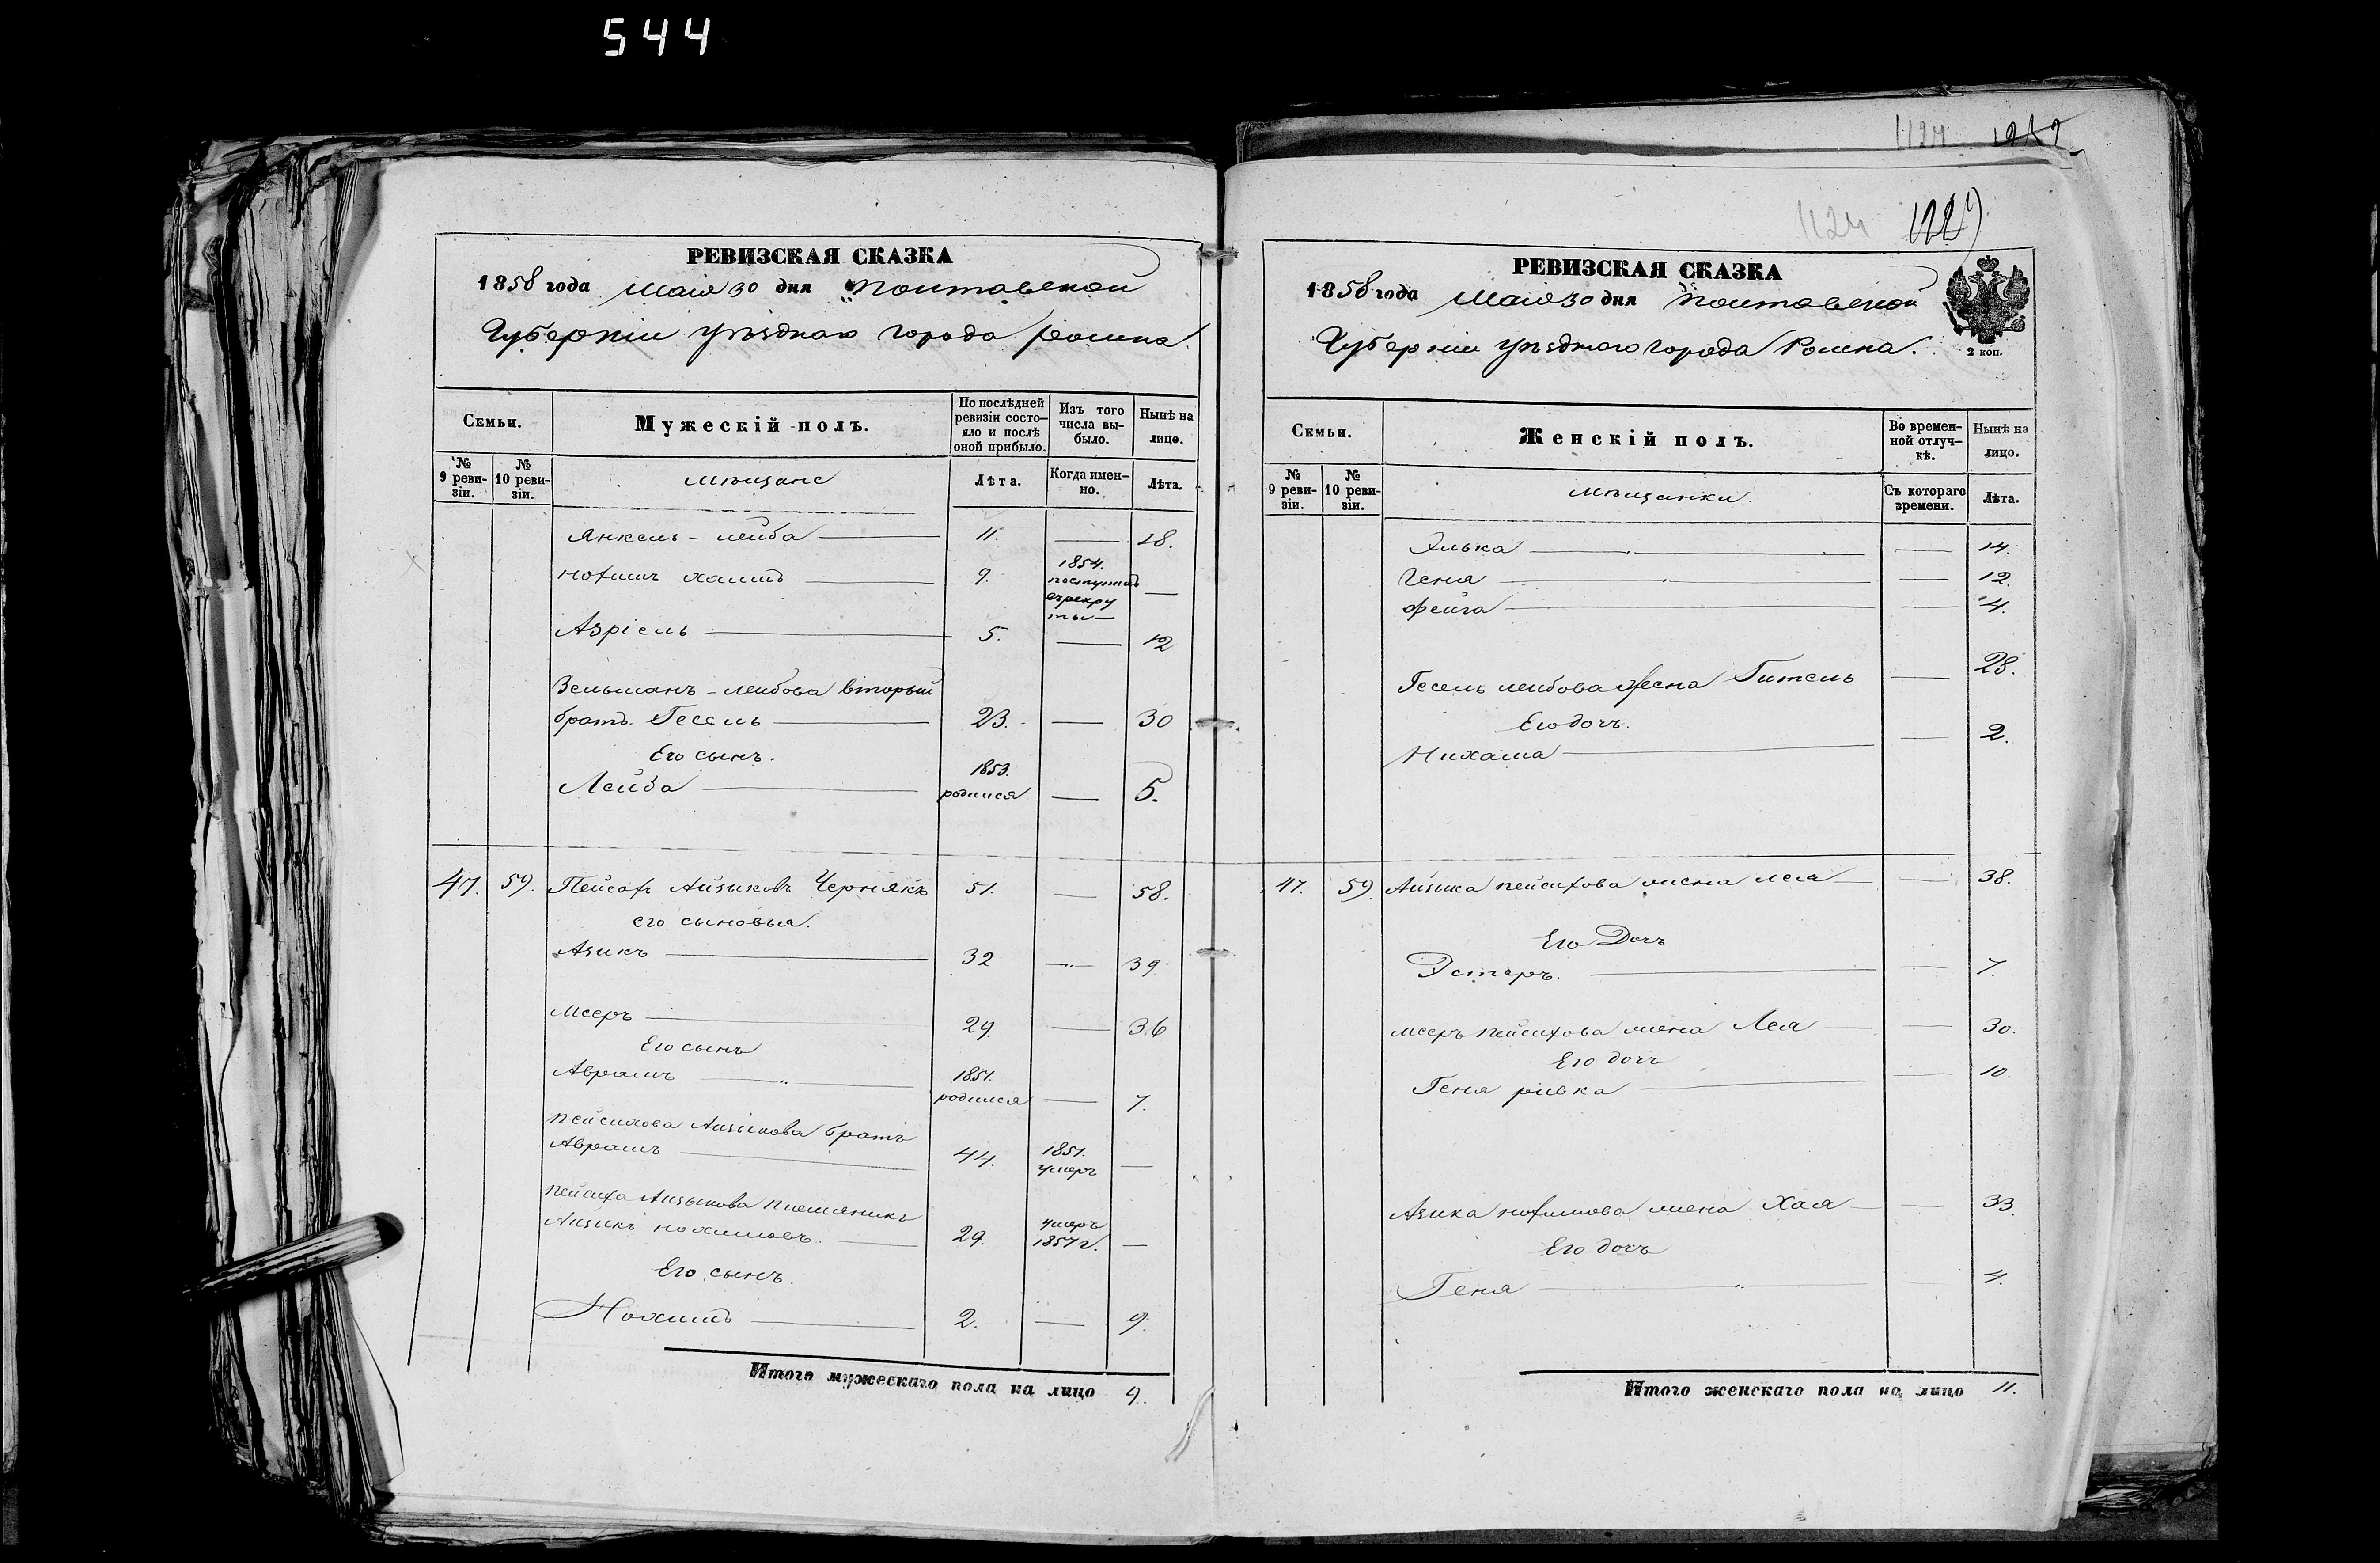 544
1124
1124
РЕВИЗСКАЯ СКАЗКА
1858 года Маія 30 дня Полтавской
Губерніи уѣзднаго города Ромна
Семьи.
Мужескій полъ.
По послѣдней ревизіи состояло и послѣ оной прибыло.
Изъ того числа выбыло.
Нынѣ на лицо.
№ 9 ревизіи.
№ 10 ревизіи.
мѣщане
Лѣта.
Когда именно.
Лѣта.
Янкель - лейба 11. — 18.
нохимъ хаимъ 9. 1854. поступилъ въ рекруты —
Азріель 5. — 12
Зельманъ - лейбова вторый
братъ Гесель 23. — 30
Его сынъ.
Лейба 1853. родился — 5.
47. 59. Пейсахъ Айзиковъ Чернякъ 51. — 58.
его сыновья.
Азикъ 32 — 39.
Мееръ 29. — 36
Его сынъ
Аврамъ 1851. родился — 7.
пейсихова Айзикова братъ
Аврамъ 44. 1851. умеръ —
пейсиха Айзикова племяникъ
Айзикъ нохимовъ. 29. умеръ 1857 г. —
Его сынъ.
Нохимъ 2. — 9.
Итого мужескаго пола на лицо 9.
РЕВИЗСКАЯ СКАЗКА
1858 года Маія 30 дня полтавской
Губерніи уѣзднаго города Ромна.
2 коп.
Семьи.
Женскій полъ.
Во временной отлучкѣ.
Нынѣ на лицо.
№ 9 ревизіи.
№ 10 ревизіи.
мѣщанки.
Съ котораго времени.
Лѣта.
Элька — 14.
Геня — 12.
фейга — 4.
Гесель лейбова жена Гитель — 28.
Его дочь.
Нихама — 2.
47. 59. Айзика пейсихова жена лея — 38.
Его Дочь
Эстеръ. — 7.
мееръ пейсихова жена Лея — 30.
Его дочь
Геня ривка — 10.
Азика нохимова жена Хая — 33.
Его дочь
Геня — 4.
Итого женскаго пола на лицо 11.